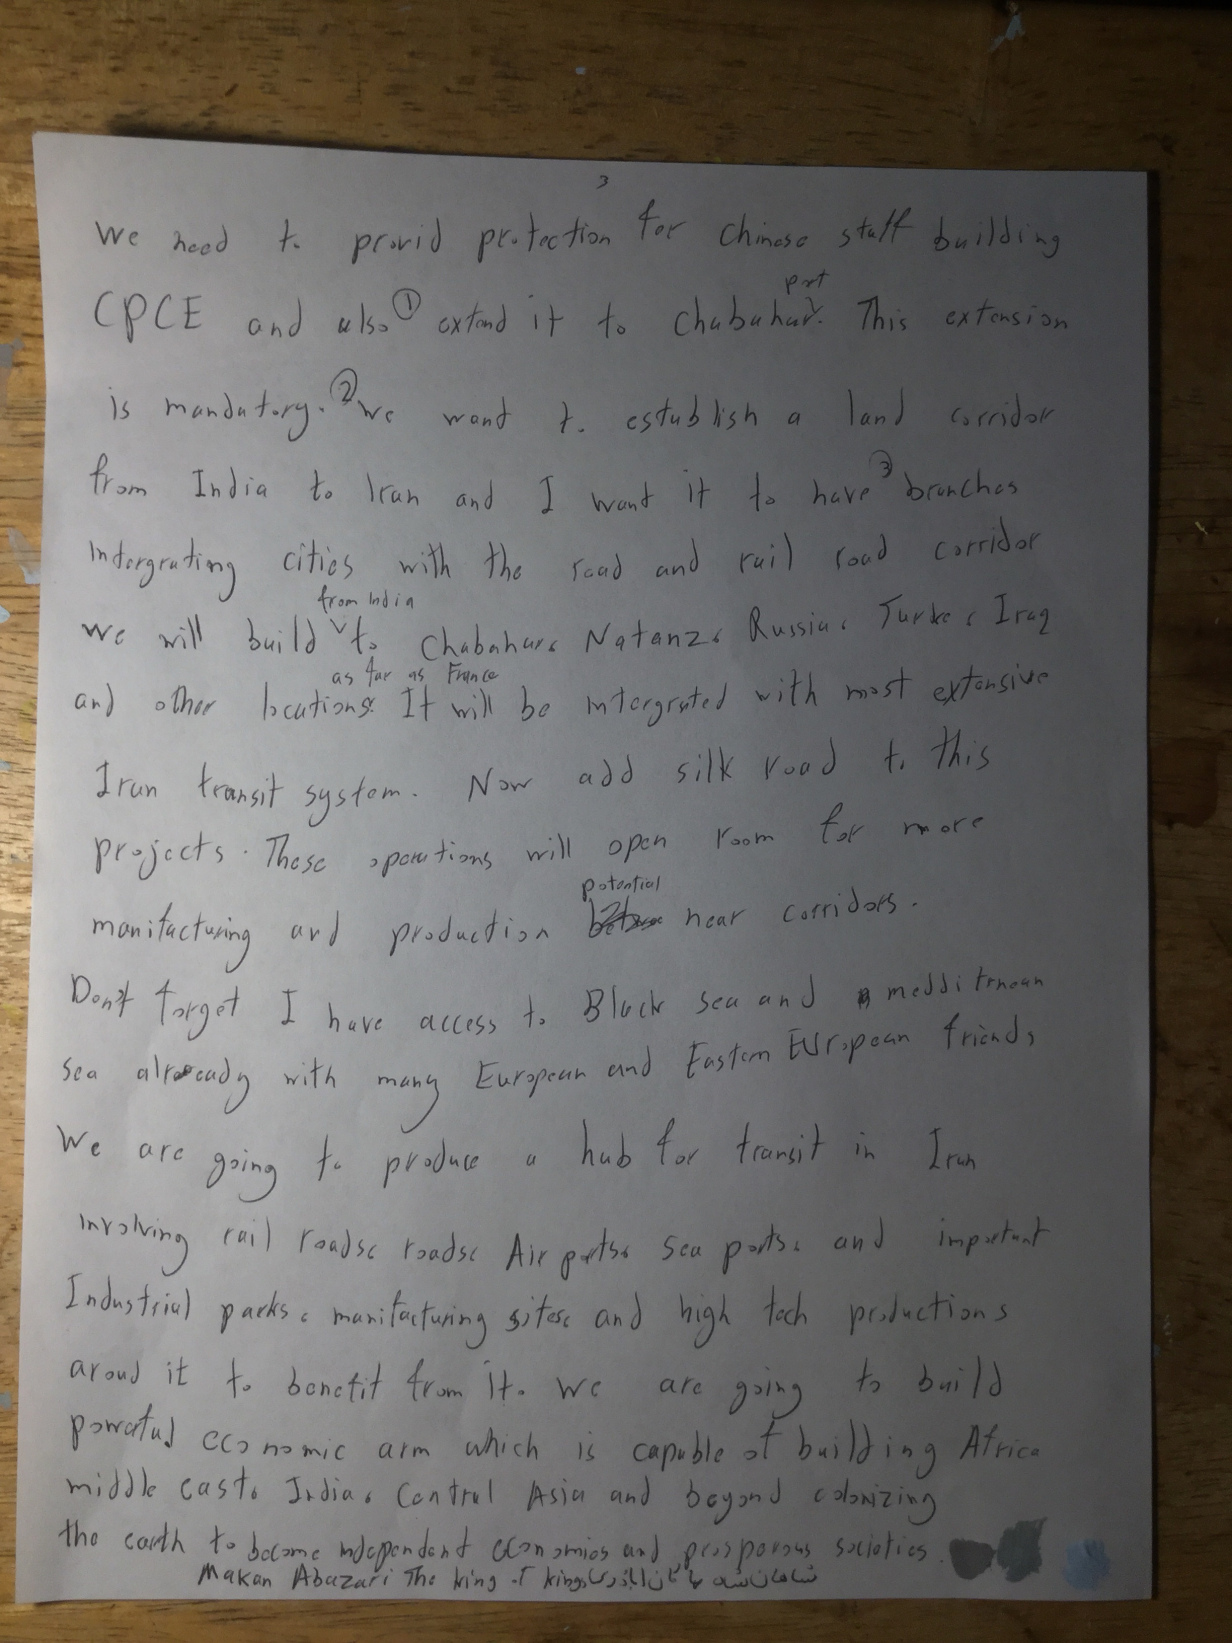 3
We need to provid protection for Chinese staff building
port
CPCE and also ① extend it to Chabahar. This extension
is mandatory. ② We want to establish a land corridor
from India to Iran and I want it to have ③ branches
intergrating cities with the road and rail road corridor
from India
we will build to Chabahar, Natanz, Russia, Turke, Iraq
as far as France
and other locations. It will be intergrated with most extensive
Iran transit system. Now add silk road to this
projects. These operations will open room for more
potential
manifacturing and production near corridors.
Don't forget I have access to Black sea and medditrnean
sea already with many European and Eastern European friends
We are going to produce a hub for transit in Iran
involving rail roads, roads, Air ports, Sea ports, and important
Industrial parks, manifacturing sites, and high tech productions
aroud it to benefit from it. We are going to build
powerful economic arm which is capable of building Africa
middle east, India, Central Asia and beyond colonizing
the earth to become independent economies and prosperous societies.
Makan Abazari The king of kings شاهان شاه ماکان اباذری